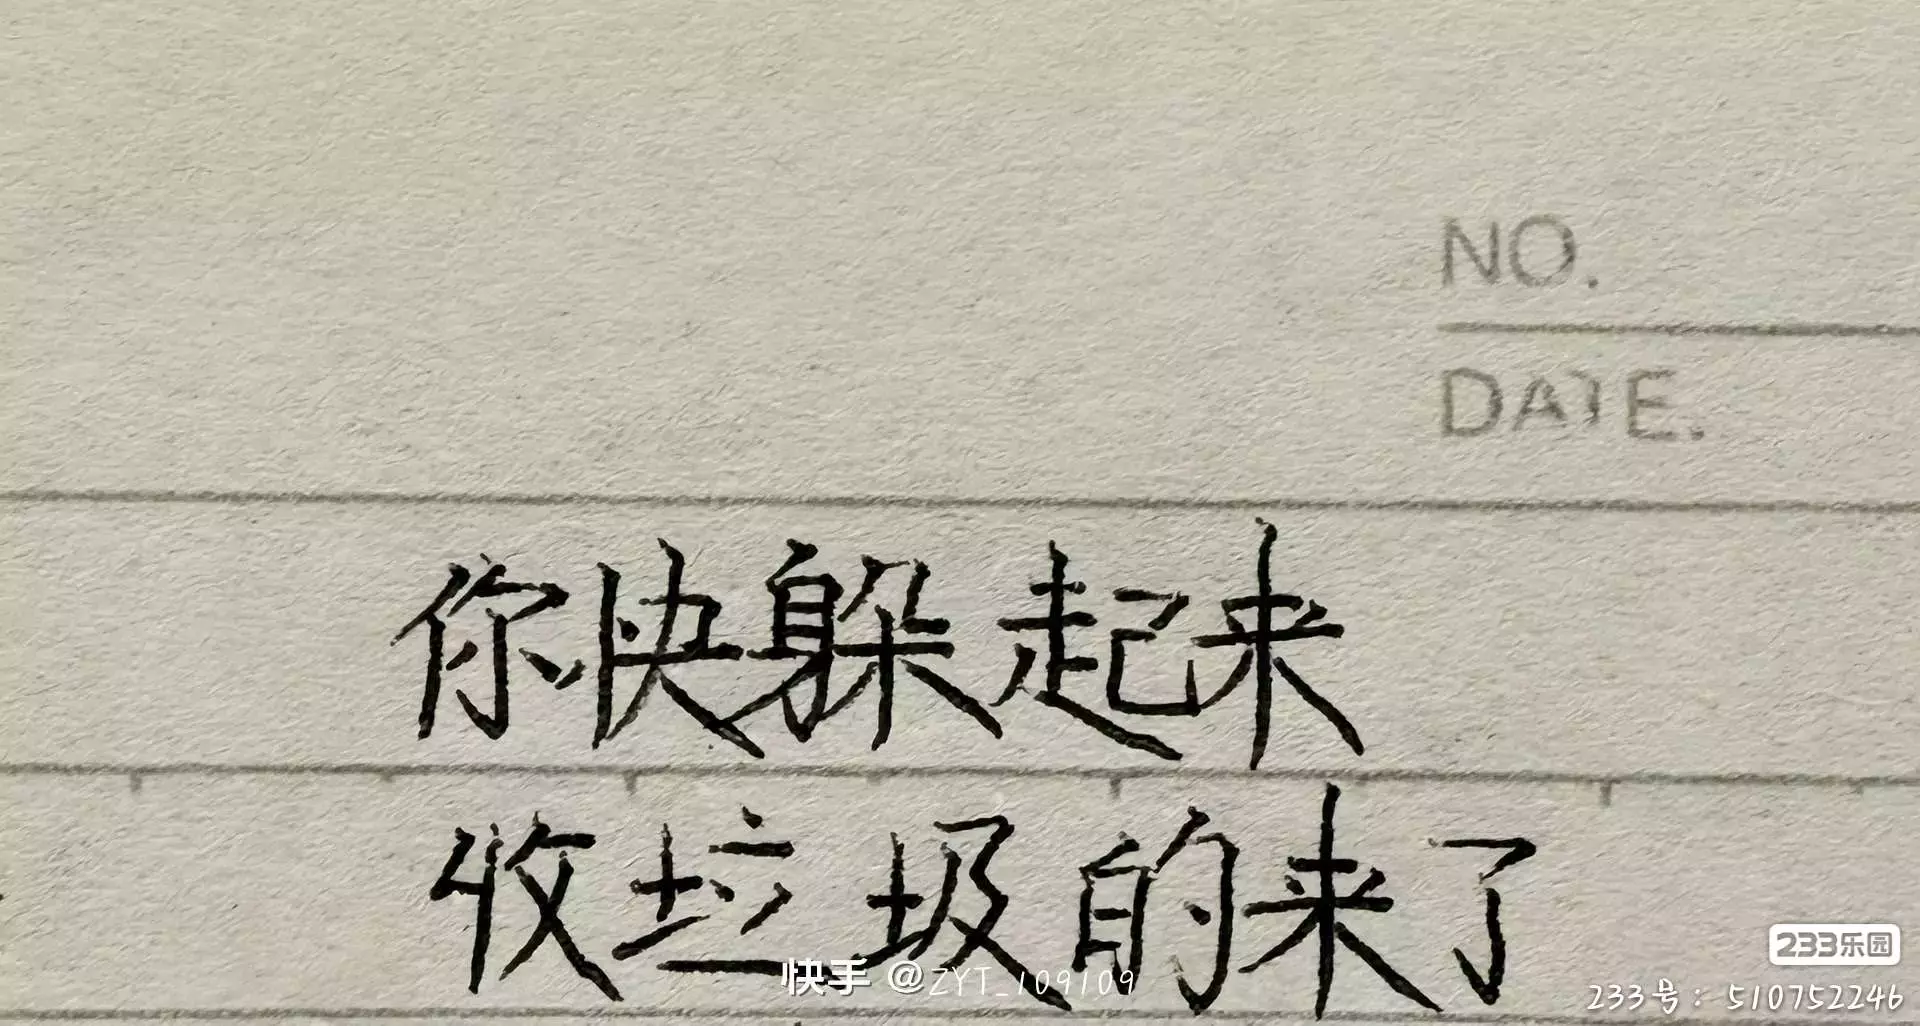 NO.
DATE.
你快躲起来
收垃圾的来了
快手 @ZYT_109109
233乐园
233号：510752246